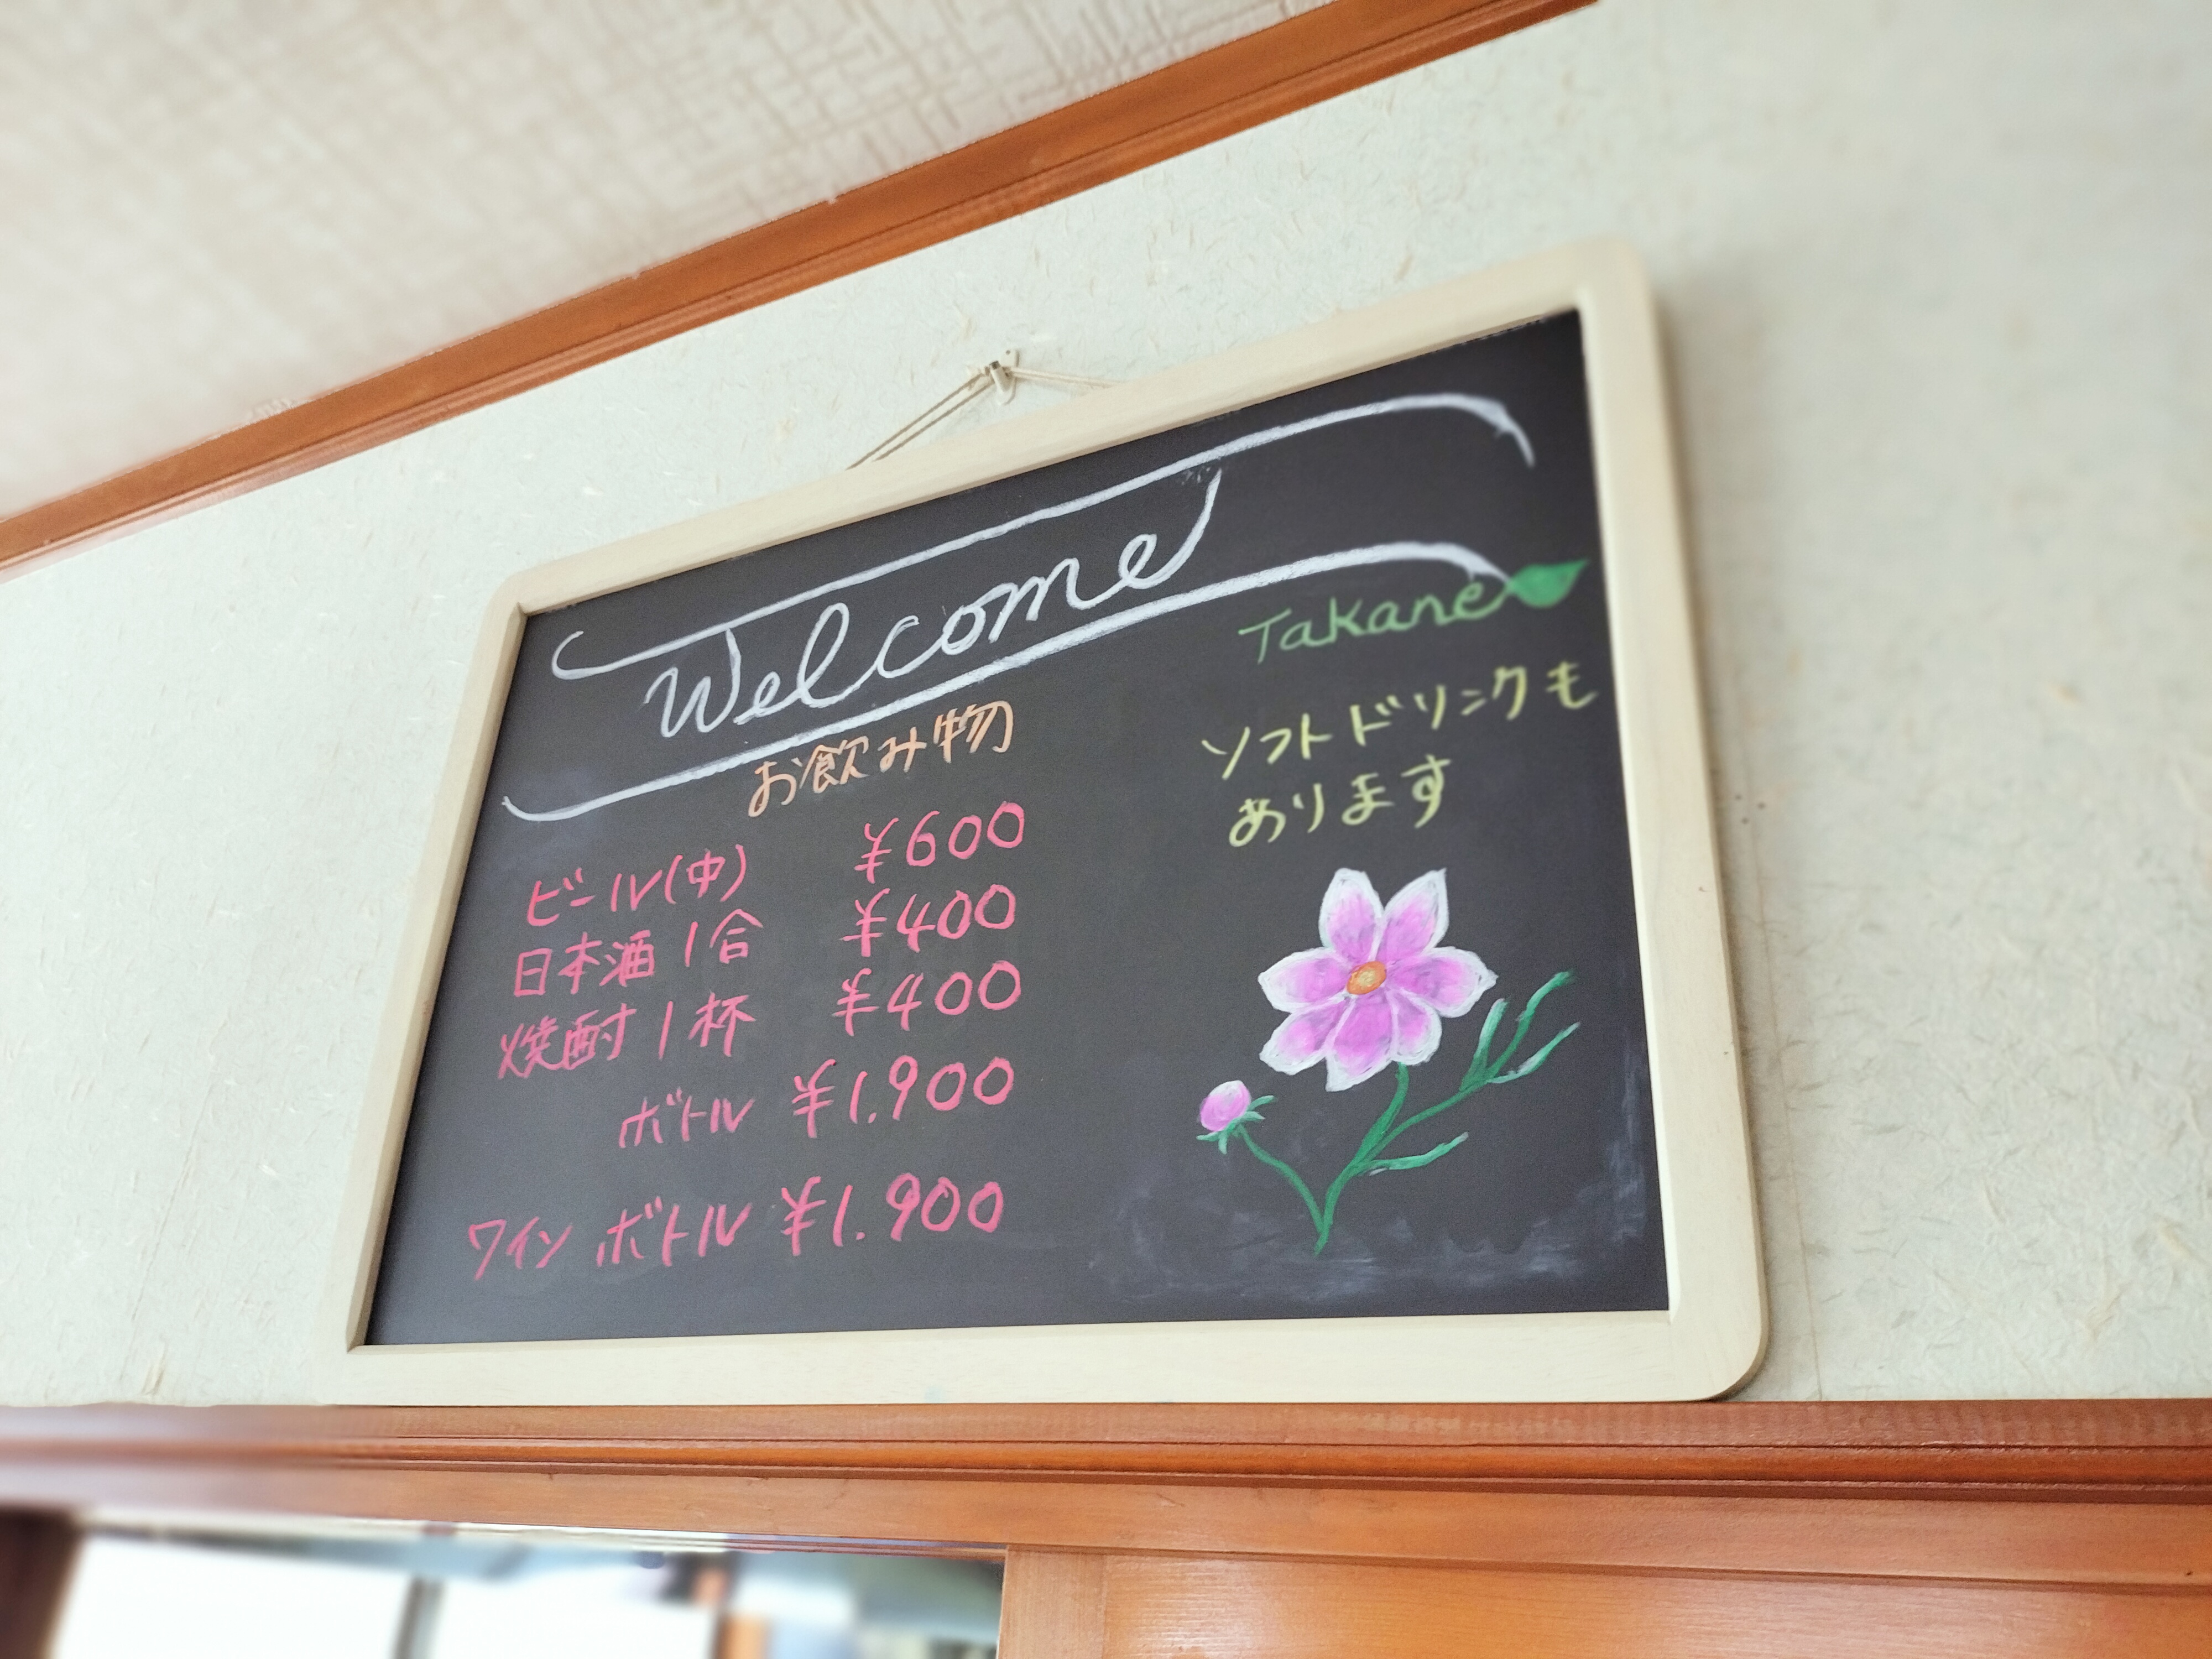 Welcome
Takane
お飲み物
ビール(中) ¥600
日本酒 1合 ¥400
焼酎 1杯 ¥400
ボトル ¥1.900
ワイン ボトル ¥1.900
ソフトドリンクも
あります